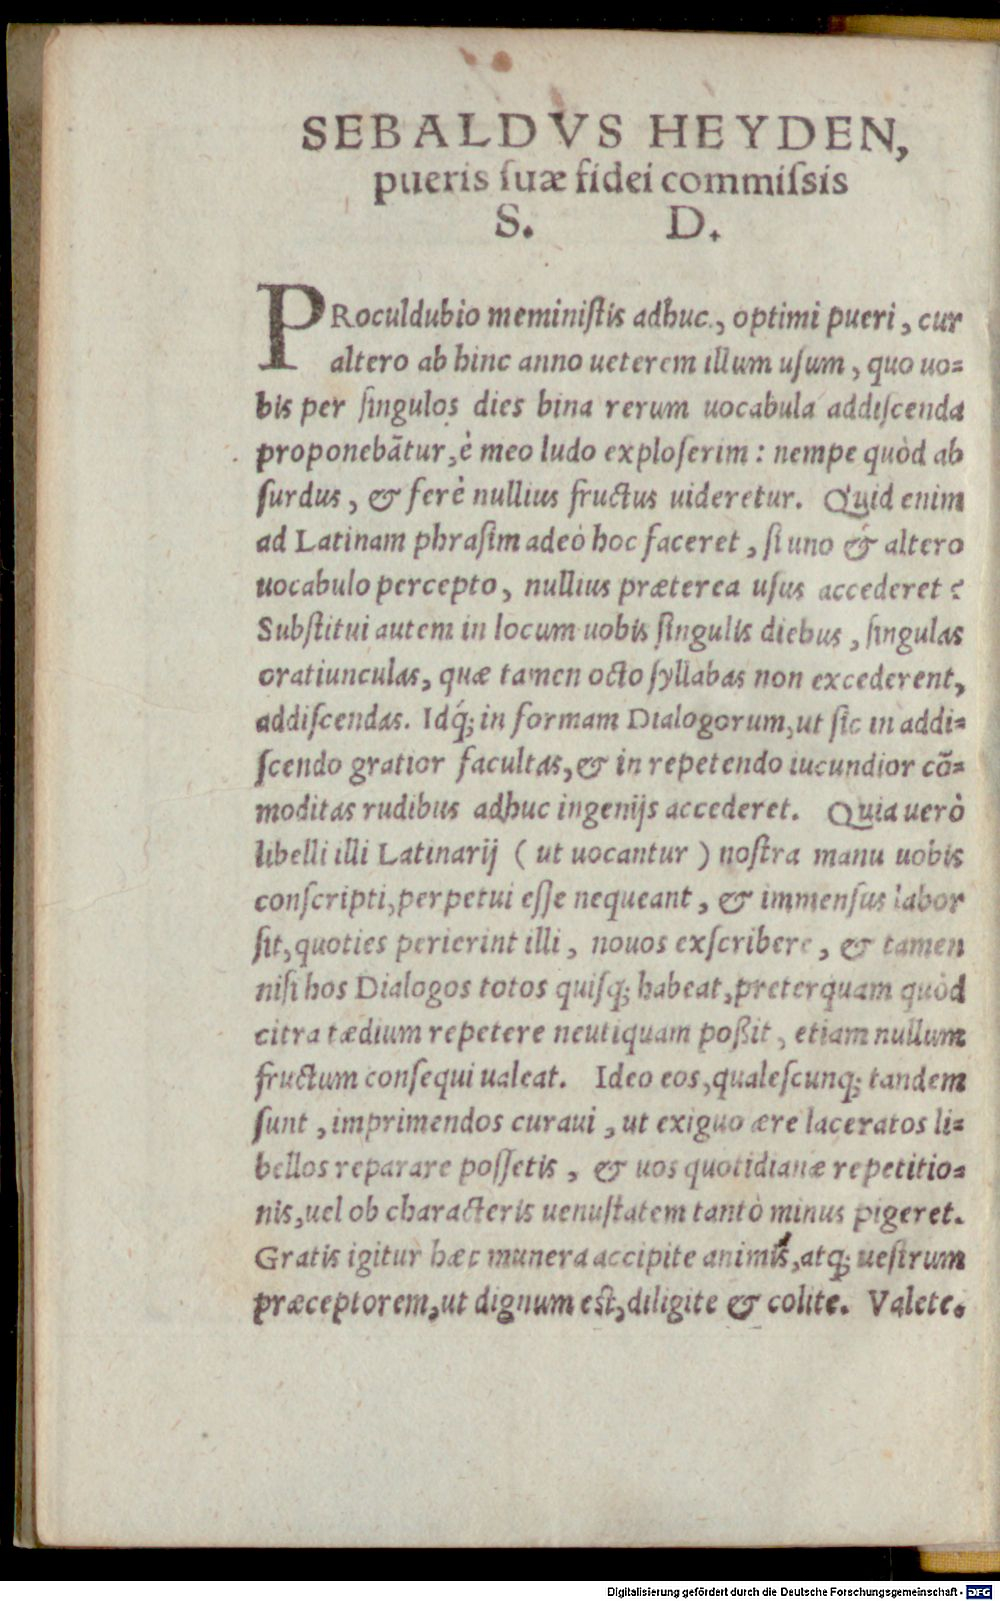 SEBALDVS HEYDEN,
pueris ſuæ fidei commiſsis
S. D.
PRoculdubio meminiſtis adhuc, optimi pueri, cur
altero ab hinc anno ueterem illum uſum, quo uo=
bis per ſingulos dies bina rerum uocabula addiſcenda
proponebãtur, è meo ludo exploſerim: nempe quòd ab
ſurdus, & ferè nullius fructus uideretur. Quid enim
ad Latinam phraſim adeò hoc faceret, ſi uno & altero
uocabulo percepto, nullius præterea uſus accederet?
Subſtitui autem in locum uobis ſingulis diebus, ſingulas
oratiunculas, quæ tamen octo ſyllabas non excederent,
addiſcendas. Idq́; in formam Dialogorum, ut ſic in addi=
ſcendo gratior facultas, & in repetendo iucundior cõ=
moditas rudibus adhuc ingenijs accederet. Quia uerò
libelli illi Latinarij ( ut uocantur ) noſtra manu uobis
conſcripti, perpetui eſſe nequeant, & immenſus labor
ſit, quoties perierint illi, nouos exſcribere, & tamen
niſi hos Dialogos totos quiſq; habeat, preterquam quòd
citra tædium repetere neutiquam poßit, etiam nullum
fructum conſequi ualeat. Ideo eos, qualeſcunq; tandem
ſunt, imprimendos curaui, ut exiguo ære laceratos li=
bellos reparare poſſetis, & uos quotidianæ repetitio=
nis, uel ob characteris uenuſtatem tantò minus pigeret.
Gratis igitur hæc munera accipite animis, atq; ueſtrum
præceptorem, ut dignum eſt, diligite & colite. Valete.
Digitalisierung gefördert durch die Deutsche Forschungsgemeinschaft - DFG